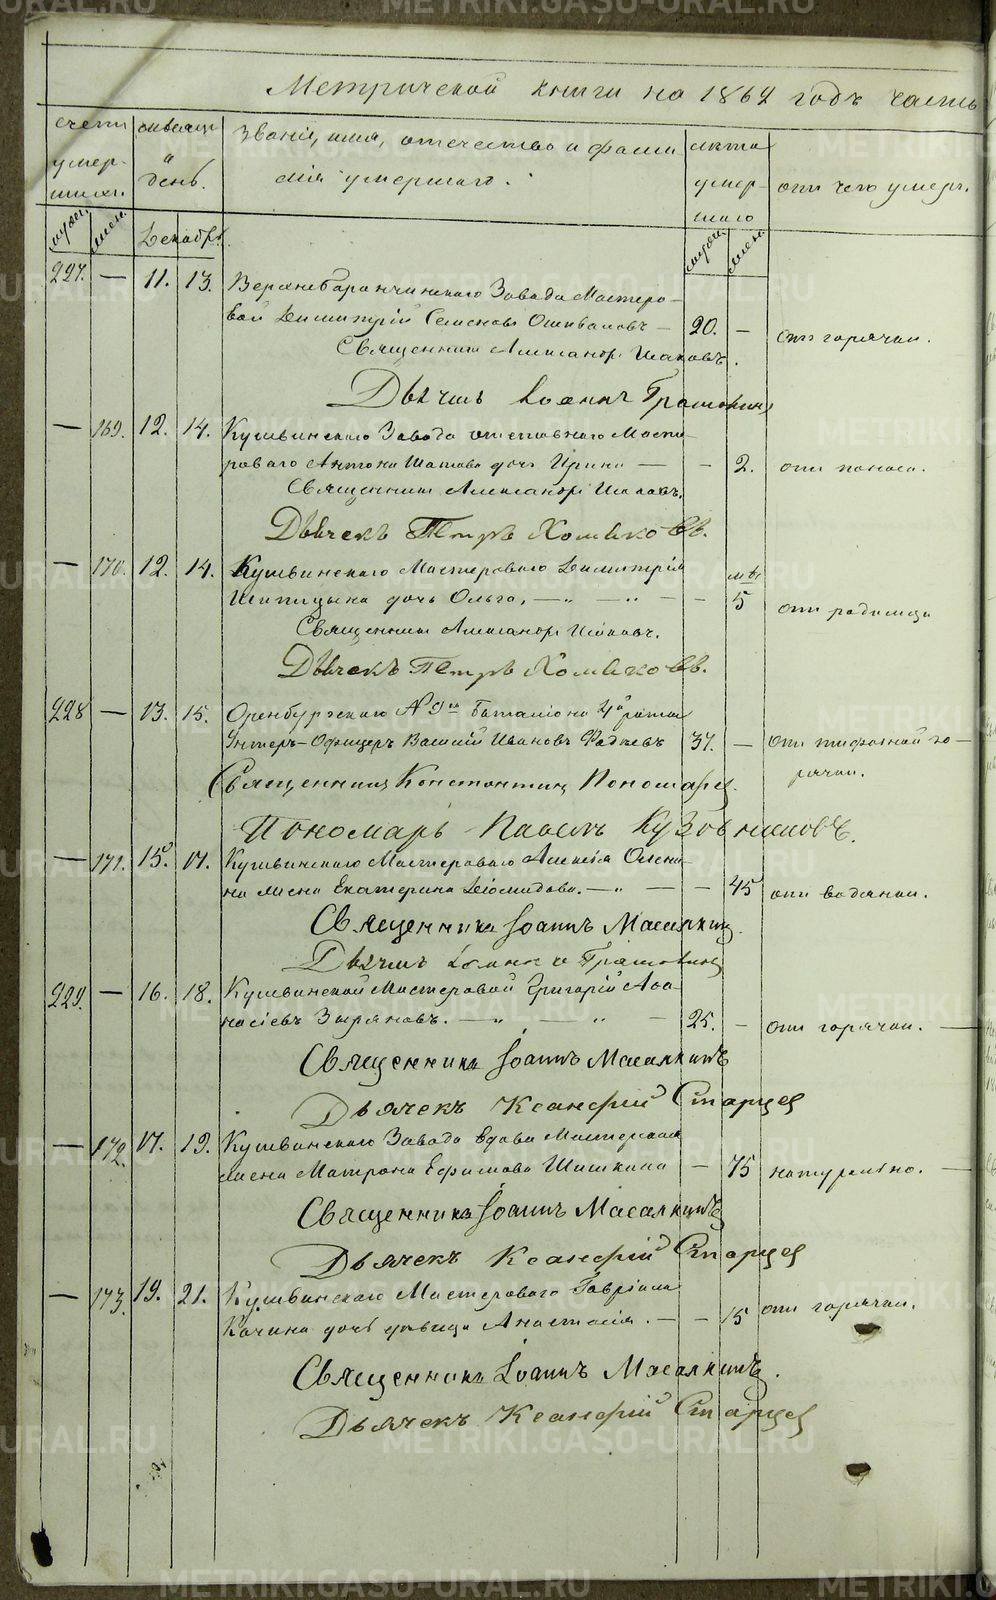 Метрической книги на 1862 годъ часть
счетъ умер- шихъ.
мѣсяцъ и день.
Званіе, имя, отчество и фами-
лія умершаго.
лѣта умер- шаго
отъ чего умеръ.
муж. жен. Декабрь. муж. жен.
227. — 11. 13. Верхнебаранчинскаго Завода Мастеро-
вой Димитрій Семеновъ — 20. — отъ горячки.
Священникъ Александръ
Дьячекъ Іоаннъ
— 169. 12. 14. Кушвинскаго Завода отставнаго Масте-
роваго Антона дочь Ирина — — 2. отъ поноса.
Священникъ Александръ
Дьячекъ Петръ Хомяковъ.
— 170. 12. 14. Кушвинскаго Мастероваго Димитрія
Шипицына дочь Ольга, — „ — „ — — 5 отъ родимца
Священникъ Александръ
Дьячекъ Петръ Хомяковъ.
228 — 13. 15. Оренбургскаго № 9го Баталіона 4й роты
Унтеръ-Офицеръ Василій Ивановъ Фадѣевъ 37. — отъ тифозной го-
рячки.
Священникъ Константинъ Пономарев.
Пономарь Павелъ Кузовниковъ.
— 171. 15. 17. Кушвинскаго Мастероваго Алексѣя
на жена Екатерина Діомидова. — „ — — 45 отъ водяной.
Священникъ Іоаннъ Масалкинъ.
Дьячекъ Іоаннъ
229. — 16. 18. Кушвинской Мастеровой Григорій Аѳа-
насіевъ Зыряновъ. — „ — „ — 25. — отъ горячки. —
Священникъ Іоаннъ Масалкинъ
Дьячекъ Ксанфій Старцев
— 172. 17. 19. Кушвинскаго Завода вдова Мастерская
жена Матрона Ефимова Шишкина — 75 натурально. —
Священникъ Іоаннъ Масалкинъ
Дьячекъ Ксанфій Старцев
— 173. 19. 21. Кушвинскаго Мастероваго Гавріила
Качина дочь дѣвица Анастасія. — — 15 отъ горячки.
Священникъ Іоаннъ Масалкинъ.
Дьячекъ Ксанфій Старцев
METRIKI.GASO-URAL.RU